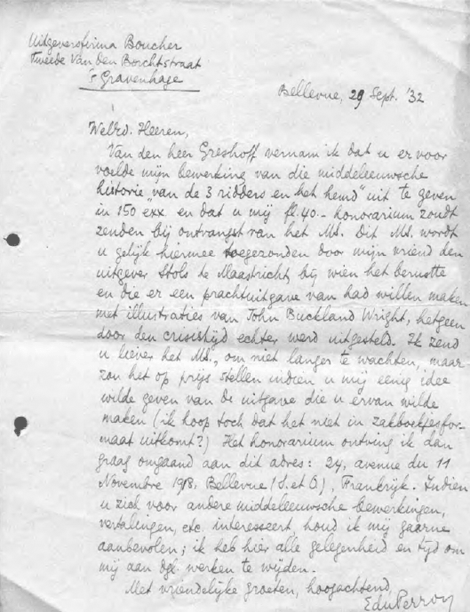 Uitgeversfirma Boucher
Tweede Van den Boschtstraat
's Gravenhage
Bellevue, 29 Sept. '32
Weled. Heeren,
Van den heer Greshoff vernam ik dat u er voor
voelde mijn bewerking van die middeleeuwsche
historie „van de 3 ridders en het hemd" uit te geven
in 150 exx en dat u mij fl. 40.- honorarium zoudt
zenden bij ontvangst van het Ms. Dit Ms. wordt
u gelijk hiermee toegezonden door mijn vriend den
uitgever Stols te Maastricht, bij wien het berustte
en die er een prachtuitgave van had willen maken
met illustraties van John Buckland Wright, hetgeen
door den crisistijd echter werd uitgesteld. Ik zend
u liever het Ms., om niet langer te wachten, maar
zou het op prijs stellen indien u mij eenig idee
wilde geven van de uitgave die u ervan wilde
maken (ik hoop toch dat het niet in zakboekjesfor-
maat uitkomt?) Het honorarium ontving ik dan
graag omgaand aan dit adres: 24, avenue du 11
Novembre 1918, Bellevue (S. et O.), Frankrijk. Indien
u zich voor andere middeleeuwsche bewerkingen,
vertalingen, etc. interesseert, houd ik mij gaarne
aanbevolen; ik heb hier alle gelegenheid en tijd om
mij aan dgl. werken te wijden.
Met vriendelijke groeten, hoogachtend,
EduPerron